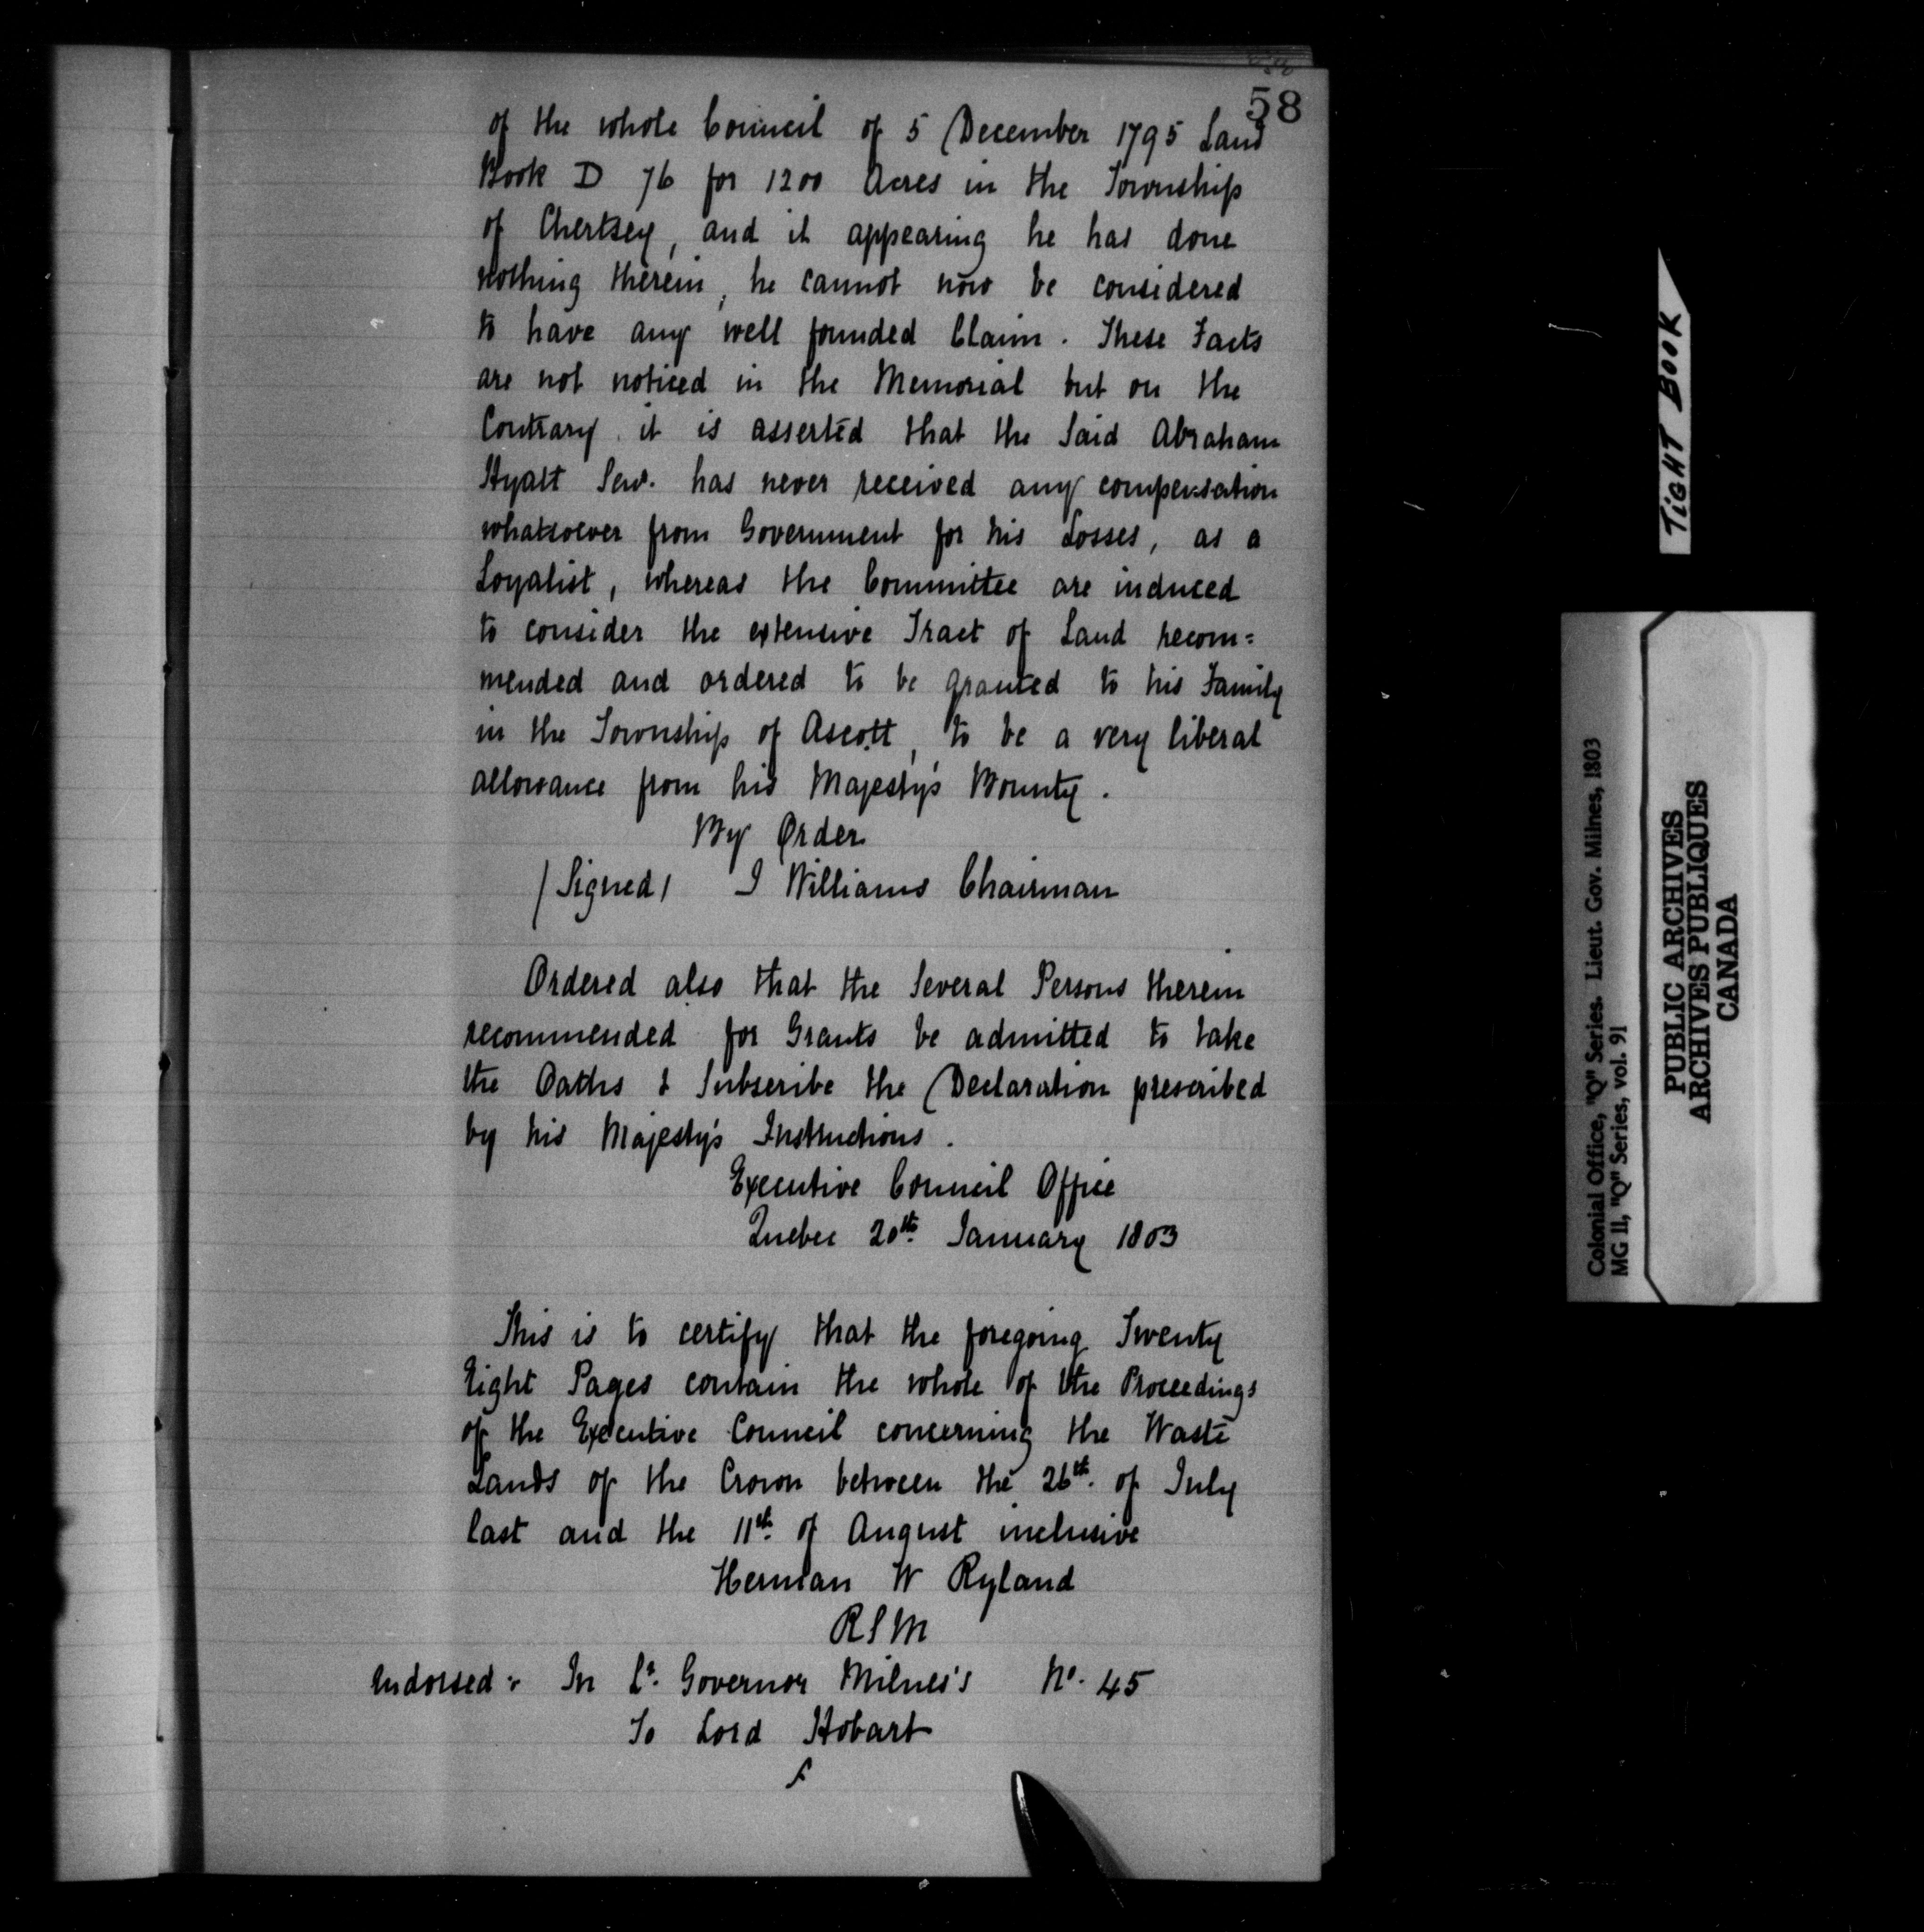 58
of the whole Council of 5 December 1795 Land
Book D 76 for 1200 Acres in the Township
of Chertsey, and it appearing he has done
nothing therein, he cannot now be considered
to have any well founded Claim. These Facts
are not noticed in the Memorial but on the
Contrary it is asserted that the Said Abraham
Hyatt Senr. has never received any compensation
whatsoever from Government for his Losses, as a
Loyalist, whereas the Committee are induced
to consider the extensive Tract of Land recom=
mended and ordered to be granted to his Family
in the Township of Ascott, to be a very liberal
allowance from his Majesty's Bounty.
By Order
(Signed) I Williams Chairman
Ordered also that the Several Persons therein
recommended for Grants be admitted to take
the Oaths & Subscribe the Declaration prescribed
by his Majesty's Instructions.
Executive Council Office
Quebec 20th January 1803
This is to certify that the foregoing Twenty
Eight Pages contain the whole of the Proceedings
of the Executive Council concerning the Waste
Lands of the Crown between the 26th. of July
last and the 11th. of August inclusive
Herman W Ryland
R S M
Endorsed: In Lt. Governor Milnes's No. 45
To Lord Hobart
TIGHT BOOK
Colonial Office, "Q" Series. Lieut. Gov. Milnes, 1803
MG 11, "Q" Series, vol. 91
PUBLIC ARCHIVES
ARCHIVES PUBLIQUES
CANADA